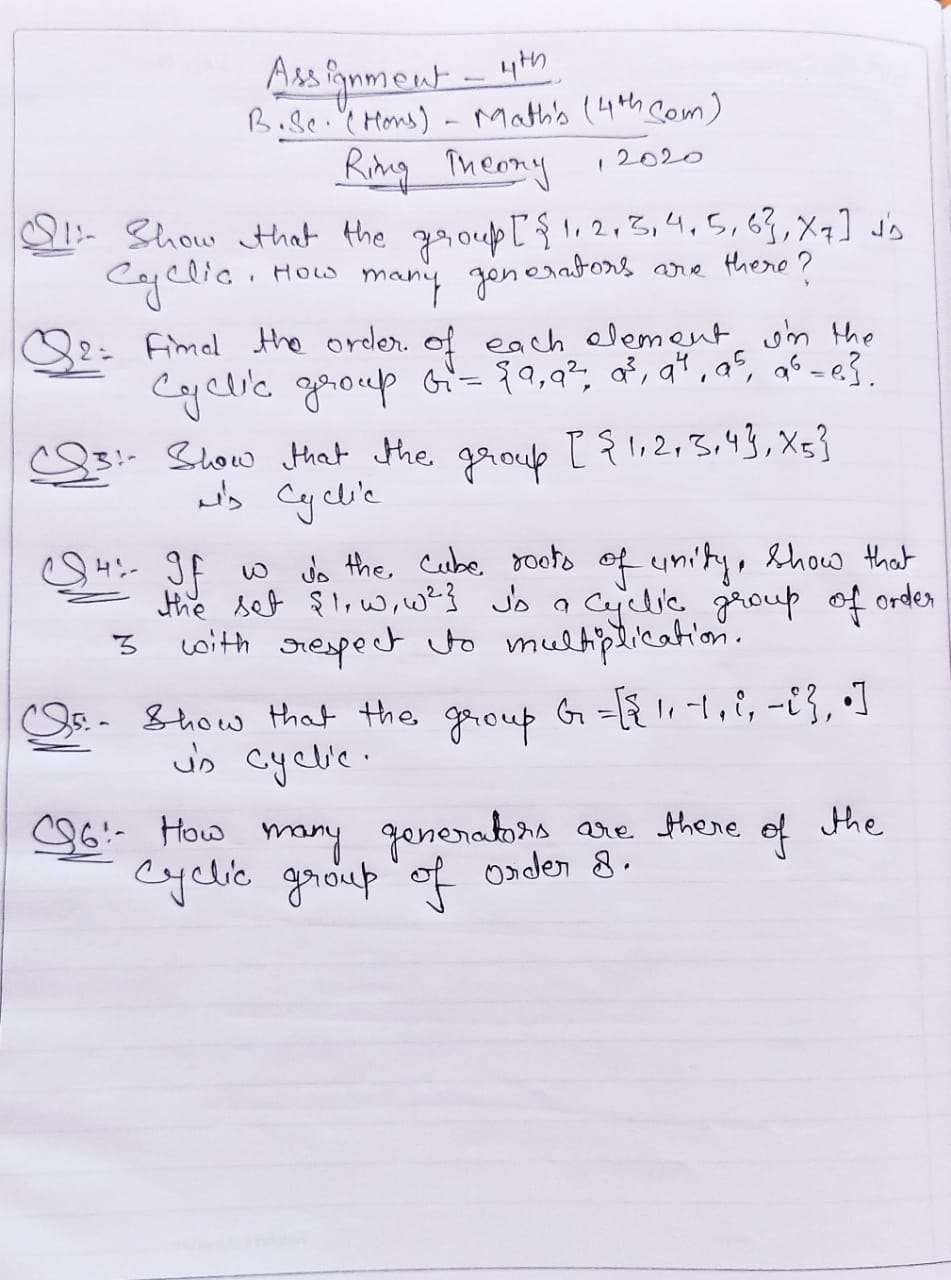 Assignment - 4th
B.Sc. (Hons) - Math's (4th Sem)
Ring Theory, 2020
Q1:- Show that the group [{1, 2, 3, 4, 5, 6}, X₇] is
Cyclic. How many generators are there?
Q2:- Find the order of each element in the
Cyclic group G = {a, a², a³, a⁴, a⁵, a⁶ = e}.
Q3:- Show that the group [{1, 2, 3, 4}, X₅}
is Cyclic
Q4:- If w is the Cube roots of unity, Show that
the set {1, w, w²} is a Cyclic group of order
3 with respect to multiplication.
Q5:- Show that the group G = [{1, -1, i, -i}, •]
is Cyclic.
Q6:- How many generators are there of the
Cyclic group of order 8.